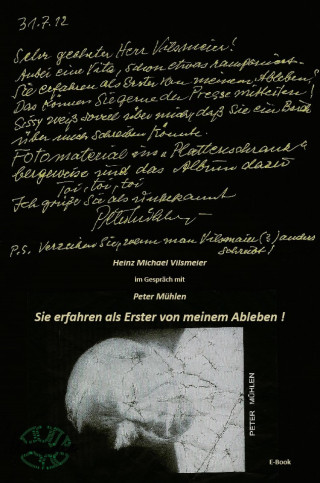 31.7.12
Sehr geehrter Herr Vilsmeier!
Anbei eine Vita, schon etwas ramponiert –
Sie erfahren als Erster von meinem Ableben,
Das können Sie gerne der Presse mitteilen!
Sissy weiß soviel über mich, daß Sie ein Buch
über mich schreiben könnte.
Fotomaterial im "Plattenschrank"
bergeweise und das Album dazu
Toi, toi, toi
Ich grüße Sie als unbekannt
P.S. Verzeihen Sie, wenn man Vilsmaier (?) anders
schreibt!
Heinz Michael Vilsmeier
im Gespräch mit
Peter Mühlen
Sie erfahren als Erster von meinem Ableben !
PETER MÜHLEN
E-Book